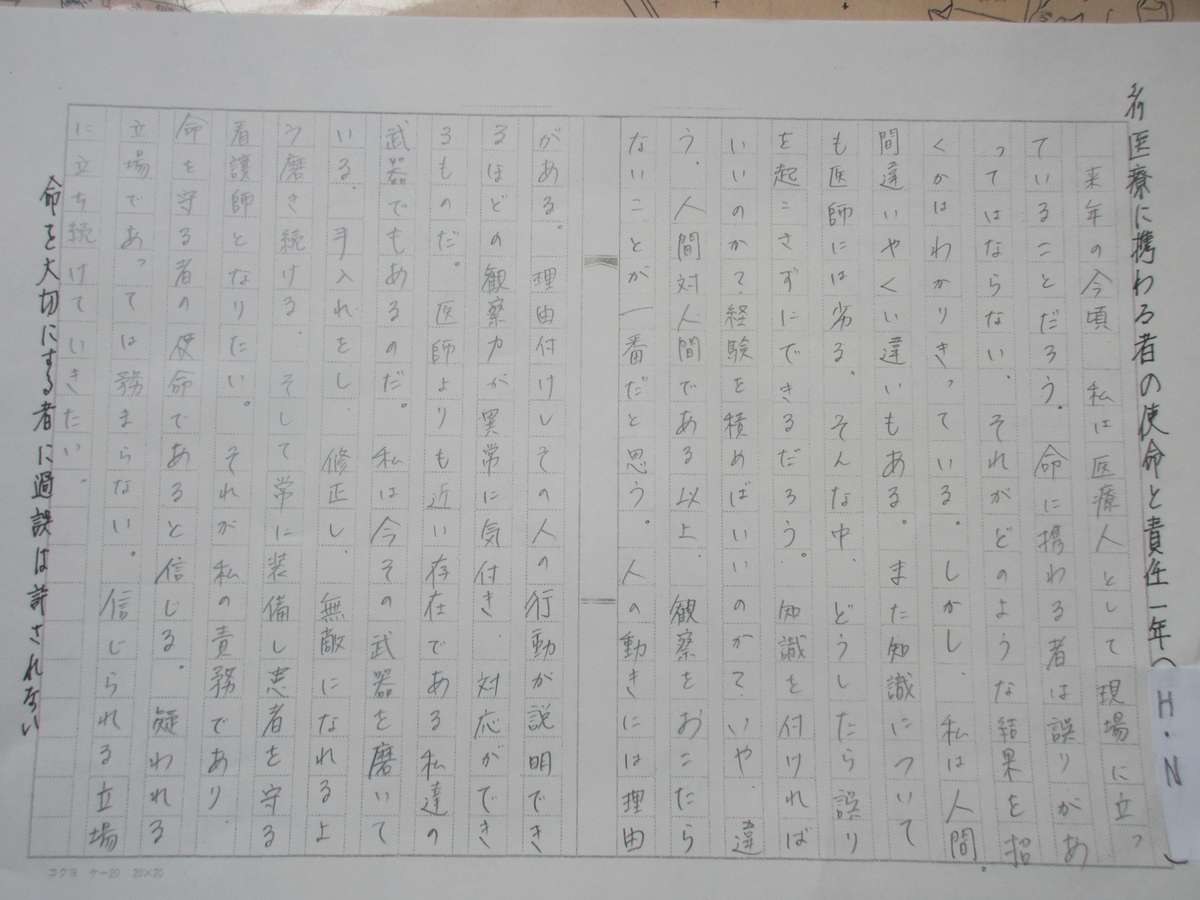 医療に携わる者の使命と責任 一年(H・N)
来年の今頃 私は医療人として現場に立っ
ていることだろう。命に携わる者は誤りがあ
ってはならない。それがどのような結果を招
くかはわかりきっている。しかし、私は人間。
間違いやくい違いもある。また知識について
も医師には劣る。そんな中、どうしたら誤り
を起こさずにできるだろう。知識を付ければ
いいのかて経験を積めばいいのかていや 違
う。人間対人間である以上、観察をおこたら
ないことが一番だと思う。人の動きには理由
がある。理由付けしその人の行動が説明でき
るほどの観察力が異常に気付き、対応ができ
るものだ。医師よりも近い存在である私達の
武器でもあるのだ。私は今その武器を磨いて
いる。手入れをし、修正し、無敵になれる上
う磨き続ける。そして常に装備し患者を守る
看護師となりたい。それが私の責務であり
命を守る者の使命であると信じる。疑われる
立場であっては務まらない。信じられる立場
に立ち続けていきたい。
命を大切にする者に過誤は許されない
コクヨ ケー20 20×20